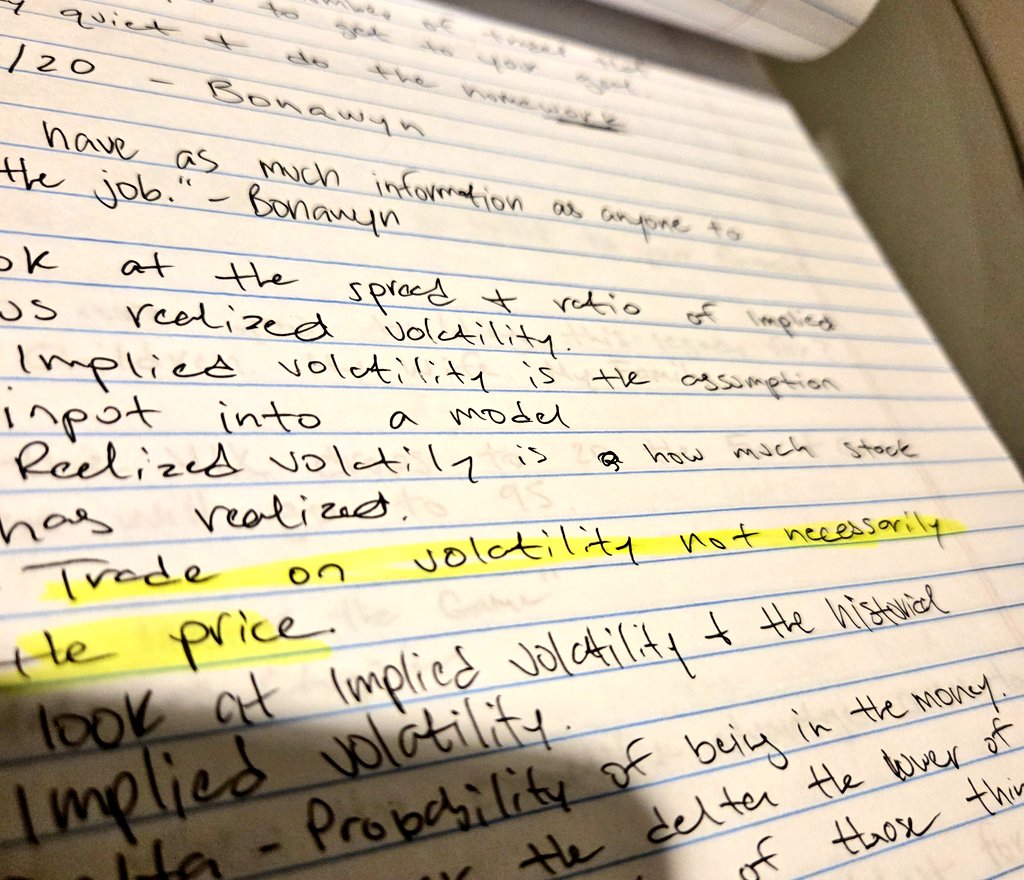 to get to your goal
quiet + do the homework
/20 - Bonawyn
have as much information as anyone to
the job." - Bonawyn
ok at the spread + ratio of Implied
us realized volatility.
Implied volatility is the assumption
input into a model
Realized volatily is how much stock
has realized.
Trade on volatility not necessarily
the price.
look at Implied volatility + the historical
Implied volatility.
Delta - Probability of being in the money.
the delta the lower of
of those thin